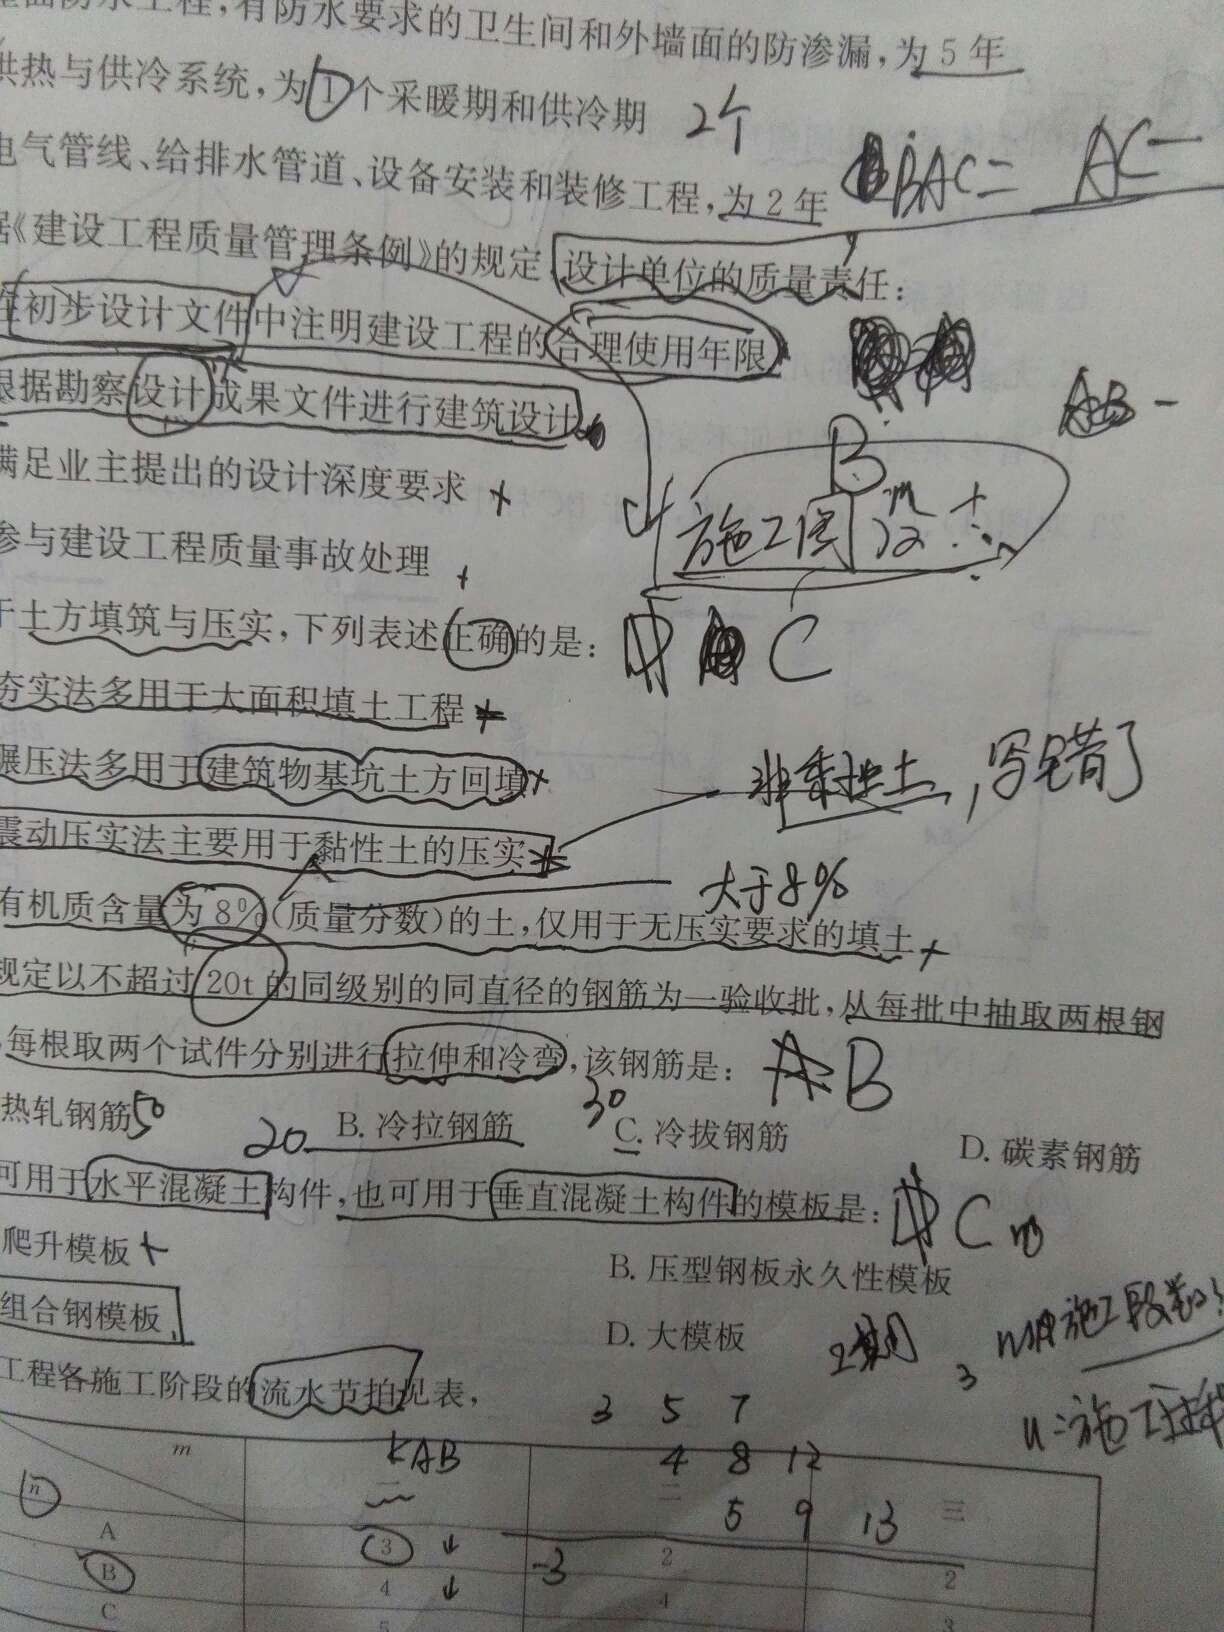 屋面防水工程,有防水要求的卫生间和外墙面的防渗漏,为 5 年
供热与供冷系统,为 1 个采暖期和供冷期 2个
电气管线、给排水管道、设备安装和装修工程,为 2 年 BAC= AC-
据《建设工程质量管理条例》的规定,设计单位的质量责任:
在初步设计文件中注明建设工程的合理使用年限
根据勘察设计成果文件进行建筑设计
AB-
B
满足业主提出的设计深度要求
施工图
参与建设工程质量事故处理
于土方填筑与压实,下列表述正确的是: C
夯实法多用于大面积填土工程
碾压法多用于建筑物基坑土方回填
非黏性土,写错了
震动压实法主要用于黏性土的压实
大于8%
有机质含量为 8%(质量分数)的土,仅用于无压实要求的填土
规定以不超过 20t 的同级别的同直径的钢筋为一验收批,从每批中抽取两根钢
,每根取两个试件分别进行拉伸和冷弯,该钢筋是: A B
热轧钢筋 50 20 B. 冷拉钢筋 30 C. 冷拔钢筋 D. 碳素钢筋
可用于水平混凝土构件,也可用于垂直混凝土构件的模板是: D C
爬升模板
B. 压型钢板永久性模板
组合钢模板
D. 大模板
工程各施工阶段的流水节拍见表,
3 5 7
m KAB 4 8 12
n 一 二 三
5 9 13
A 3 2 2
-3
B 4 4
C 5 3